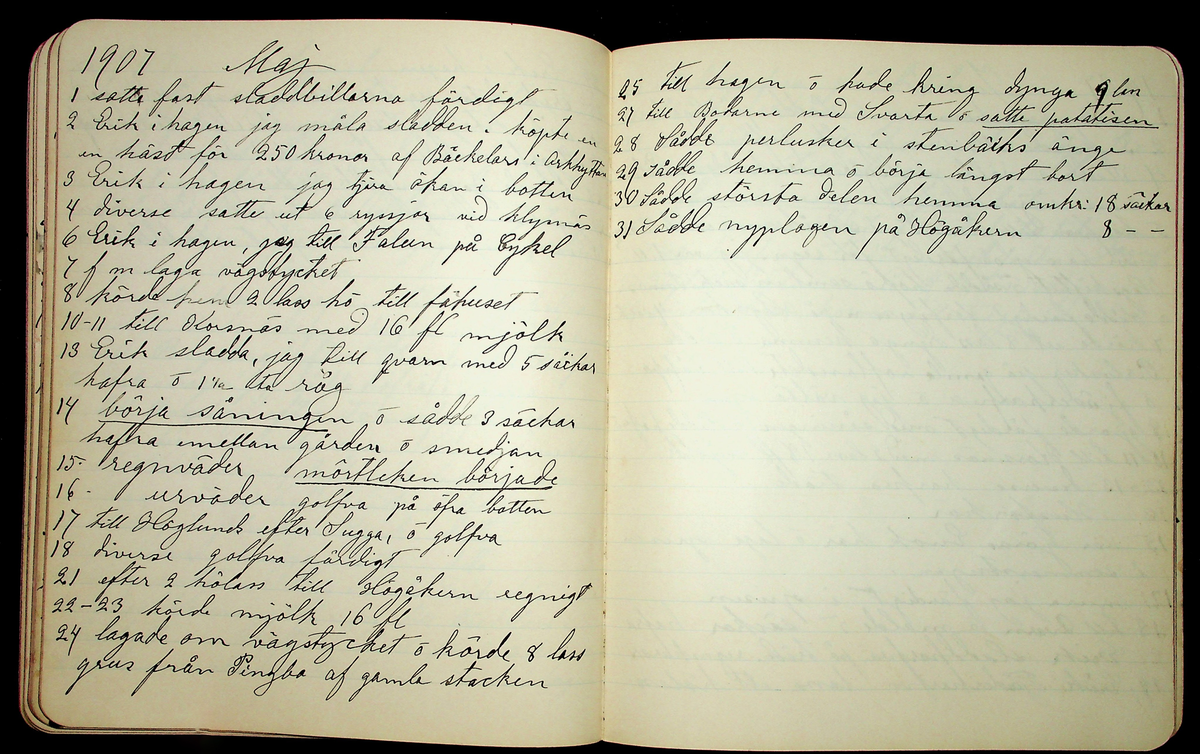 1907 Maj
1 satte fast sladdbillarna färdigt
2 Erik i hagen jag måla sladden. köpte en
en häst för 250 kronor af Bäckelars i Arkhyttan
3 Erik i hagen jag tjära ökan i botten
4 diverse satte ut 6 ryssjor vid Klysnäs
6 Erik i hagen, jag till Falun på Cykel
7 f m laga vägstycket
8 körde hem 2 lass hö till fähuset
10-11 till Korsnäs med 16 fl mjölk
13 Erik sladda, jag till qvarn med 5 säckar
hafra ō 1 1/2 råg
14 börja såningen ō sådde 3 säckar
hafra emellan gården ō smedjan
15. regnväder mörtleken började
16. urväder golfva på öfra botten
17 till Höglunds efter Sugga, ō golfva
18 diverse golfva färdigt
21 efter 2 hölass till Högåkern regnigt
22-23 körde mjölk 16 fl
24 lagade om vägstycket ō körde 8 lass
grus från Pingbo af gamla stacken
25 till hagen ō hade kring dynga 9 lan
27 till Bodarne med Svarta ō satte patatisen
28 Sådde perlusker i stenbäcks änge
29 sådde hemma ō börja längst bort
30 Sådde största delen hemma omkr: 18 säckar
31 Sådde nyplogen på Högåkern 8 - -